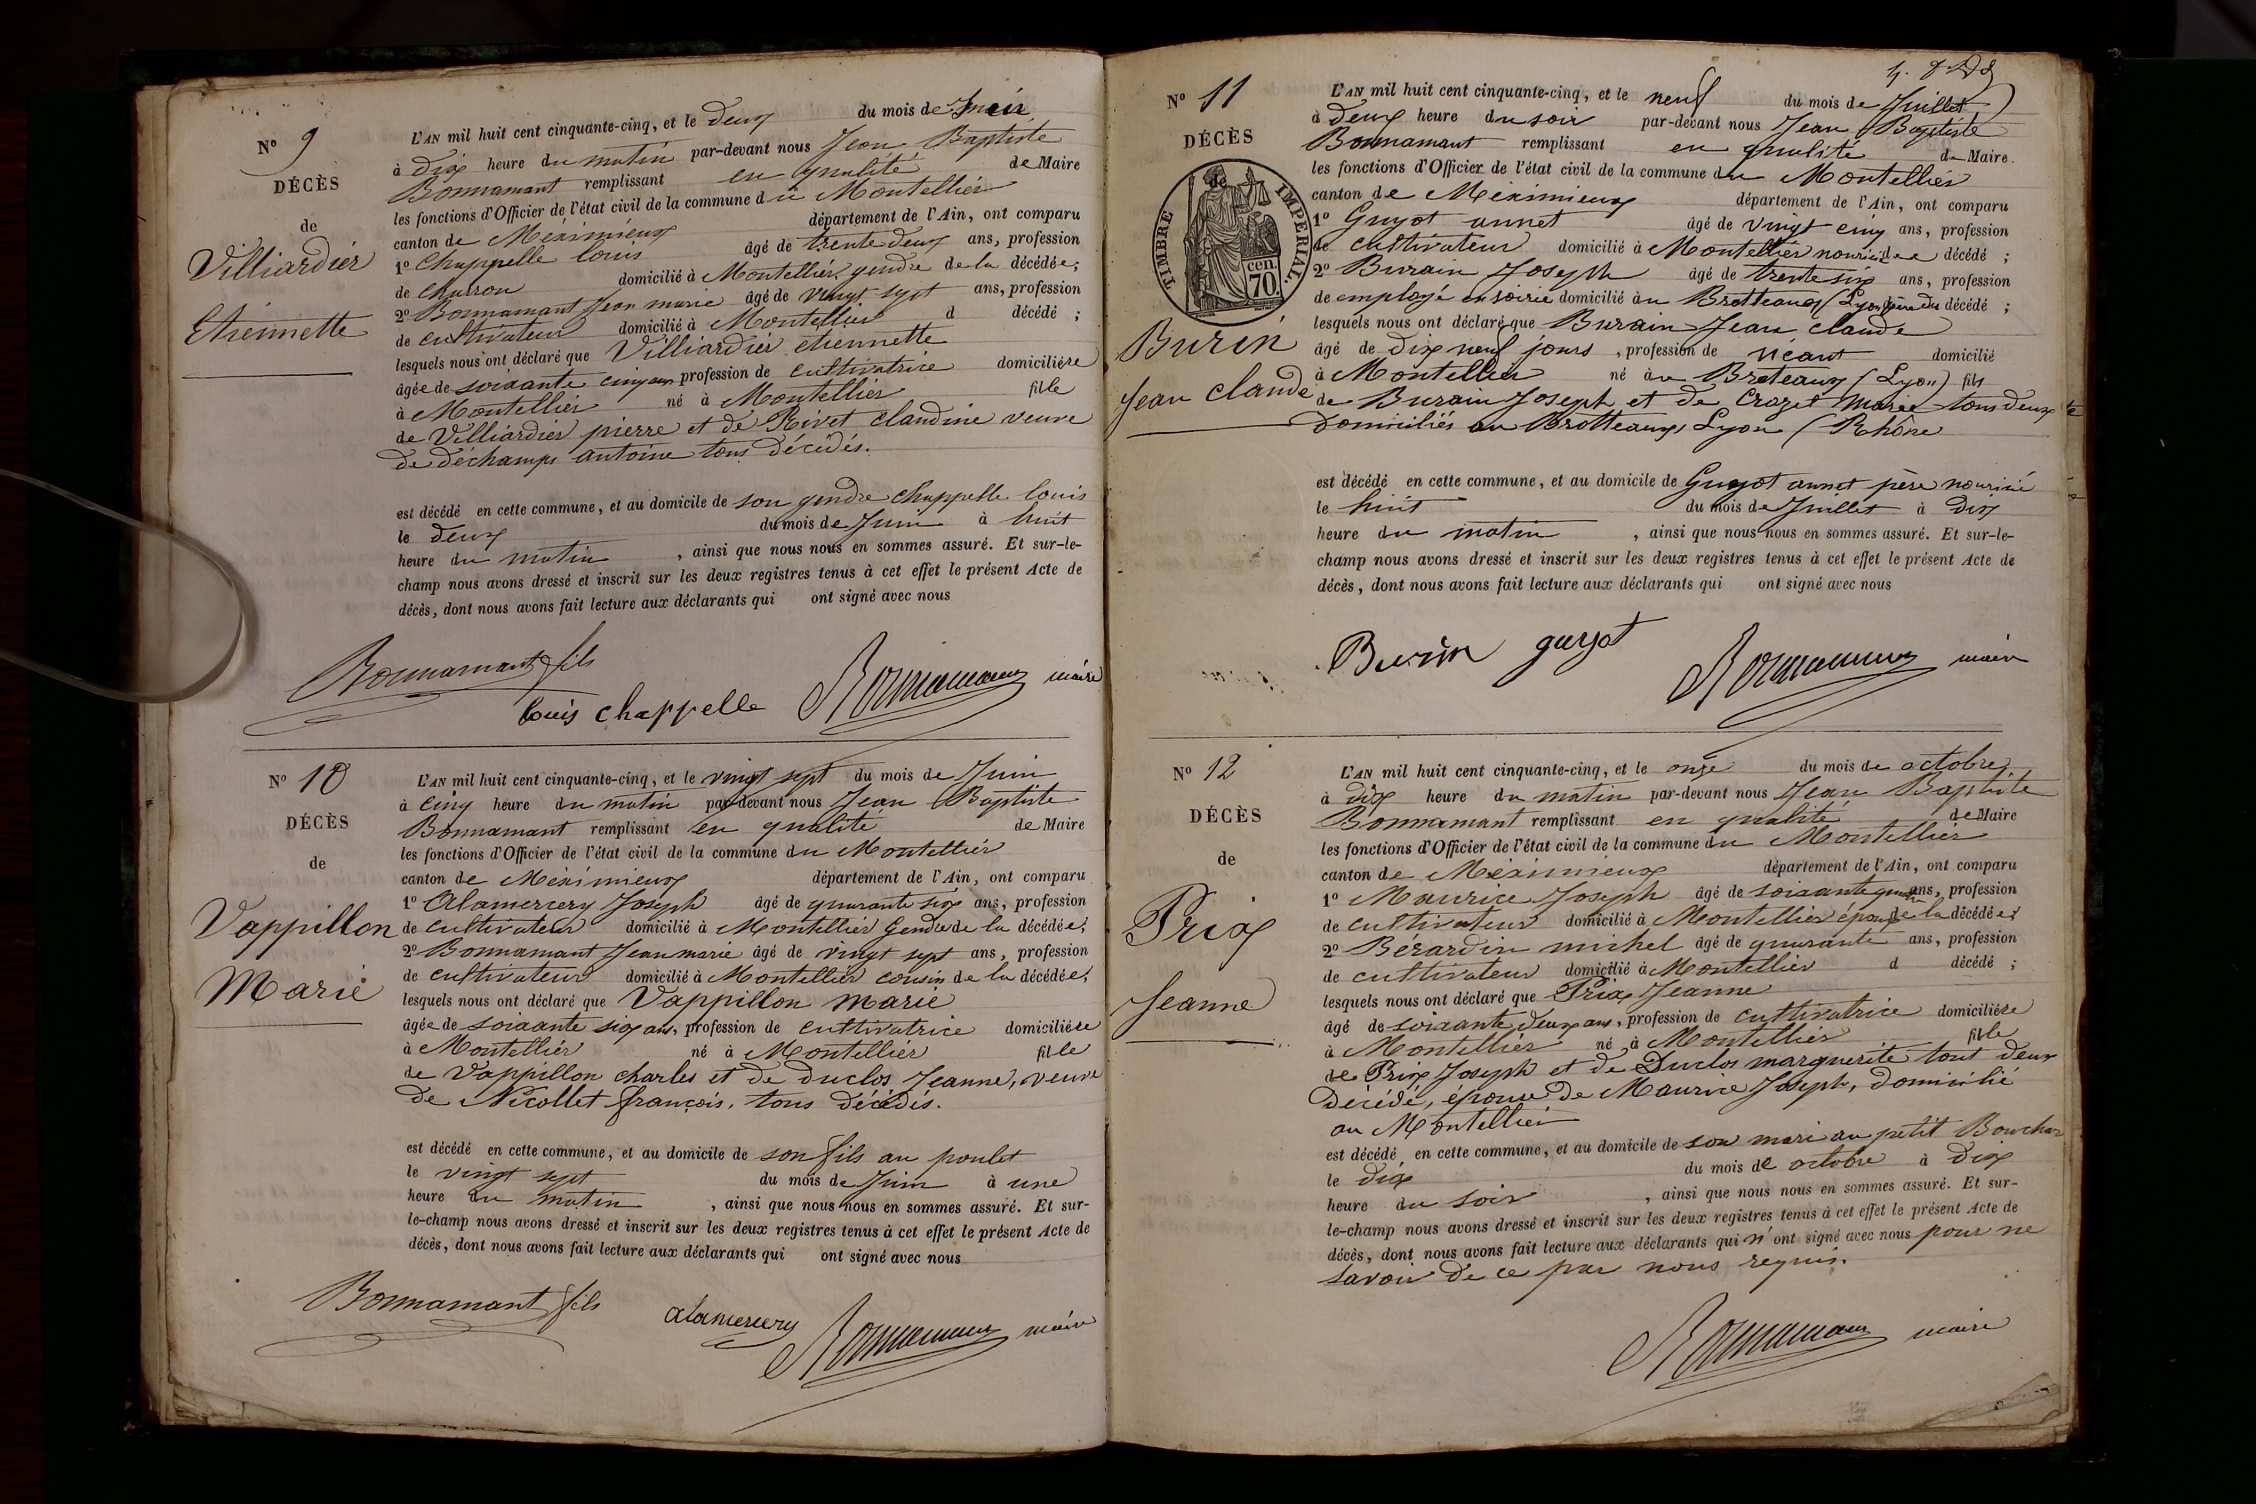 N° 9
DÉCÈS
de
Villiardier
Etiennette
L'AN mil huit cent cinquante-cinq, et le deux du mois de Juin
à dix heure du matin par-devant nous Jean Baptiste
Bonnamant remplissant en qualité de Maire
les fonctions d'Officier de l'état civil de la commune du Montellier
canton de Méximieux département de l'Ain, ont comparu
1° Chappelle louis âgé de trente deux ans, profession
de charron domicilié à Montellier gendre de la décédée;
2° Bonnamant Jean marie âgé de vingt sept ans, profession
de cultivateur domicilié à Montellier d décédé ;
lesquels nous ont déclaré que Villiardier etiennette
âgée de soixante cinq ans profession de cultivatrice domiciliére
à Montellier né à Montellier fille
de Villiardier pierre et de Rivet claudine veuve
de déchamps antoine tous décédés.
est décédé en cette commune, et au domicile de son gendre chappelle louis
le deux du mois de Juin à huit
heure du matin , ainsi que nous nous en sommes assuré. Et sur-le-
champ nous avons dressé et inscrit sur les deux registres tenus à cet effet le présent Acte de
décès, dont nous avons fait lecture aux déclarants qui ont signé avec nous
Bonnamant fils
louis chappelle Bonnamant maire
N° 10
DÉCÈS
de
Vappillon
Marie
L'AN mil huit cent cinquante-cinq, et le vingt sept du mois de Juin
à cinq heure du matin par-devant nous Jean Baptiste
Bonnamant remplissant en qualité de Maire
les fonctions d'Officier de l'état civil de la commune du Montellier
canton de Méximieux département de l'Ain, ont comparu
1° Alamercery Joseph âgé de quarante six ans, profession
de cultivateur domicilié à Montellier Gendre de la décédée,
2° Bonnamant Jean marie âgé de vingt sept ans, profession
de cultivateur domicilié à Montellier cousin de la décédée,
lesquels nous ont déclaré que Vappillon marie
âgée de soixante six ans, profession de cultivatrice domiciliére
à Montellier né à Montellier fille
de Vappillon charles et de duclos Jeanne, veuve
de Nicollet françois, tous décédés.
est décédé en cette commune, et au domicile de son fils au poulet
le vingt sept du mois de Juin à une
heure du matin , ainsi que nous nous en sommes assuré. Et sur-
le-champ nous avons dressé et inscrit sur les deux registres tenus à cet effet le présent Acte de
décès, dont nous avons fait lecture aux déclarants qui ont signé avec nous
Bonnamant fils
alamercery Bonnamant maire
N° 11
DÉCÈS
de
TIMBRE IMPERIAL.
70. cen.
Burin
Jean Claude
L'AN mil huit cent cinquante-cinq, et le neuf du mois de Juillet
à deux heure du soir par-devant nous Jean Baptiste
Bonnamant remplissant en qualité de Maire.
les fonctions d'Officier de l'état civil de la commune du Montellier
canton de Méximieux département de l'Ain, ont comparu
1° Guyot annet âgé de vingt cinq ans, profession
de cultivateur domicilié à Montellier décédé ;
2° Burain Joseph âgé de trente six ans, profession
de employé en soirie domicilié àu Brotteaux (Lyon) père du décédé ;
lesquels nous ont déclaré que Burain Jean claude
âgé de dix neuf jours , profession de néant domicilié
à Montellier né àu Broteaux (Lyon) fils
de Burain Joseph et de Crozet Marie tous deux
domiciliés au Brotteaux Lyon (Rhône
est décédé en cette commune, et au domicile de Guyot annet père nouricié
le huit du mois de Juillet à dix
heure du matin , ainsi que nous nous en sommes assuré. Et sur-le-
champ nous avons dressé et inscrit sur les deux registres tenus à cet effet le présent Acte de
décès, dont nous avons fait lecture aux déclarants qui ont signé avec nous
Burin guyot
Bonnamant maire
N° 12
DÉCÈS
de
Priax
Jeanne
L'AN mil huit cent cinquante-cinq, et le onze du mois de octobre
à dix heure du matin par-devant nous Jean Baptiste
Bonnamant remplissant en qualité de Maire
les fonctions d'Officier de l'état civil de la commune du Montellier
canton de Méximieux département de l'Ain, ont comparu
1° Maurice Joseph âgé de soixante ans, profession
de cultivateur domicilié à Montellier époux de la décédée;
2° Bérardin michel âgé de quarante ans, profession
de cultivateur domicilié à Montellier d décédé ;
lesquels nous ont déclaré que Priax Jeanne
âgé de soixante deux ans, profession de cultivatrice domiciliére
à Montellier né à Montellier fille
de Priax Joseph et de Duclos marguerite tout deux
décédé, épouse de Maurice Joseph, domicilié
au Montellier
est décédé en cette commune, et au domicile de son mari au petit
le dix du mois de octobre à dix
heure du soir , ainsi que nous nous en sommes assuré. Et sur-
le-champ nous avons dressé et inscrit sur les deux registres tenus à cet effet le présent Acte de
décès, dont nous avons fait lecture aux déclarants qui n'ont signé avec nous pour ne
savoir de ce par nous requis.
Bonnamant maire